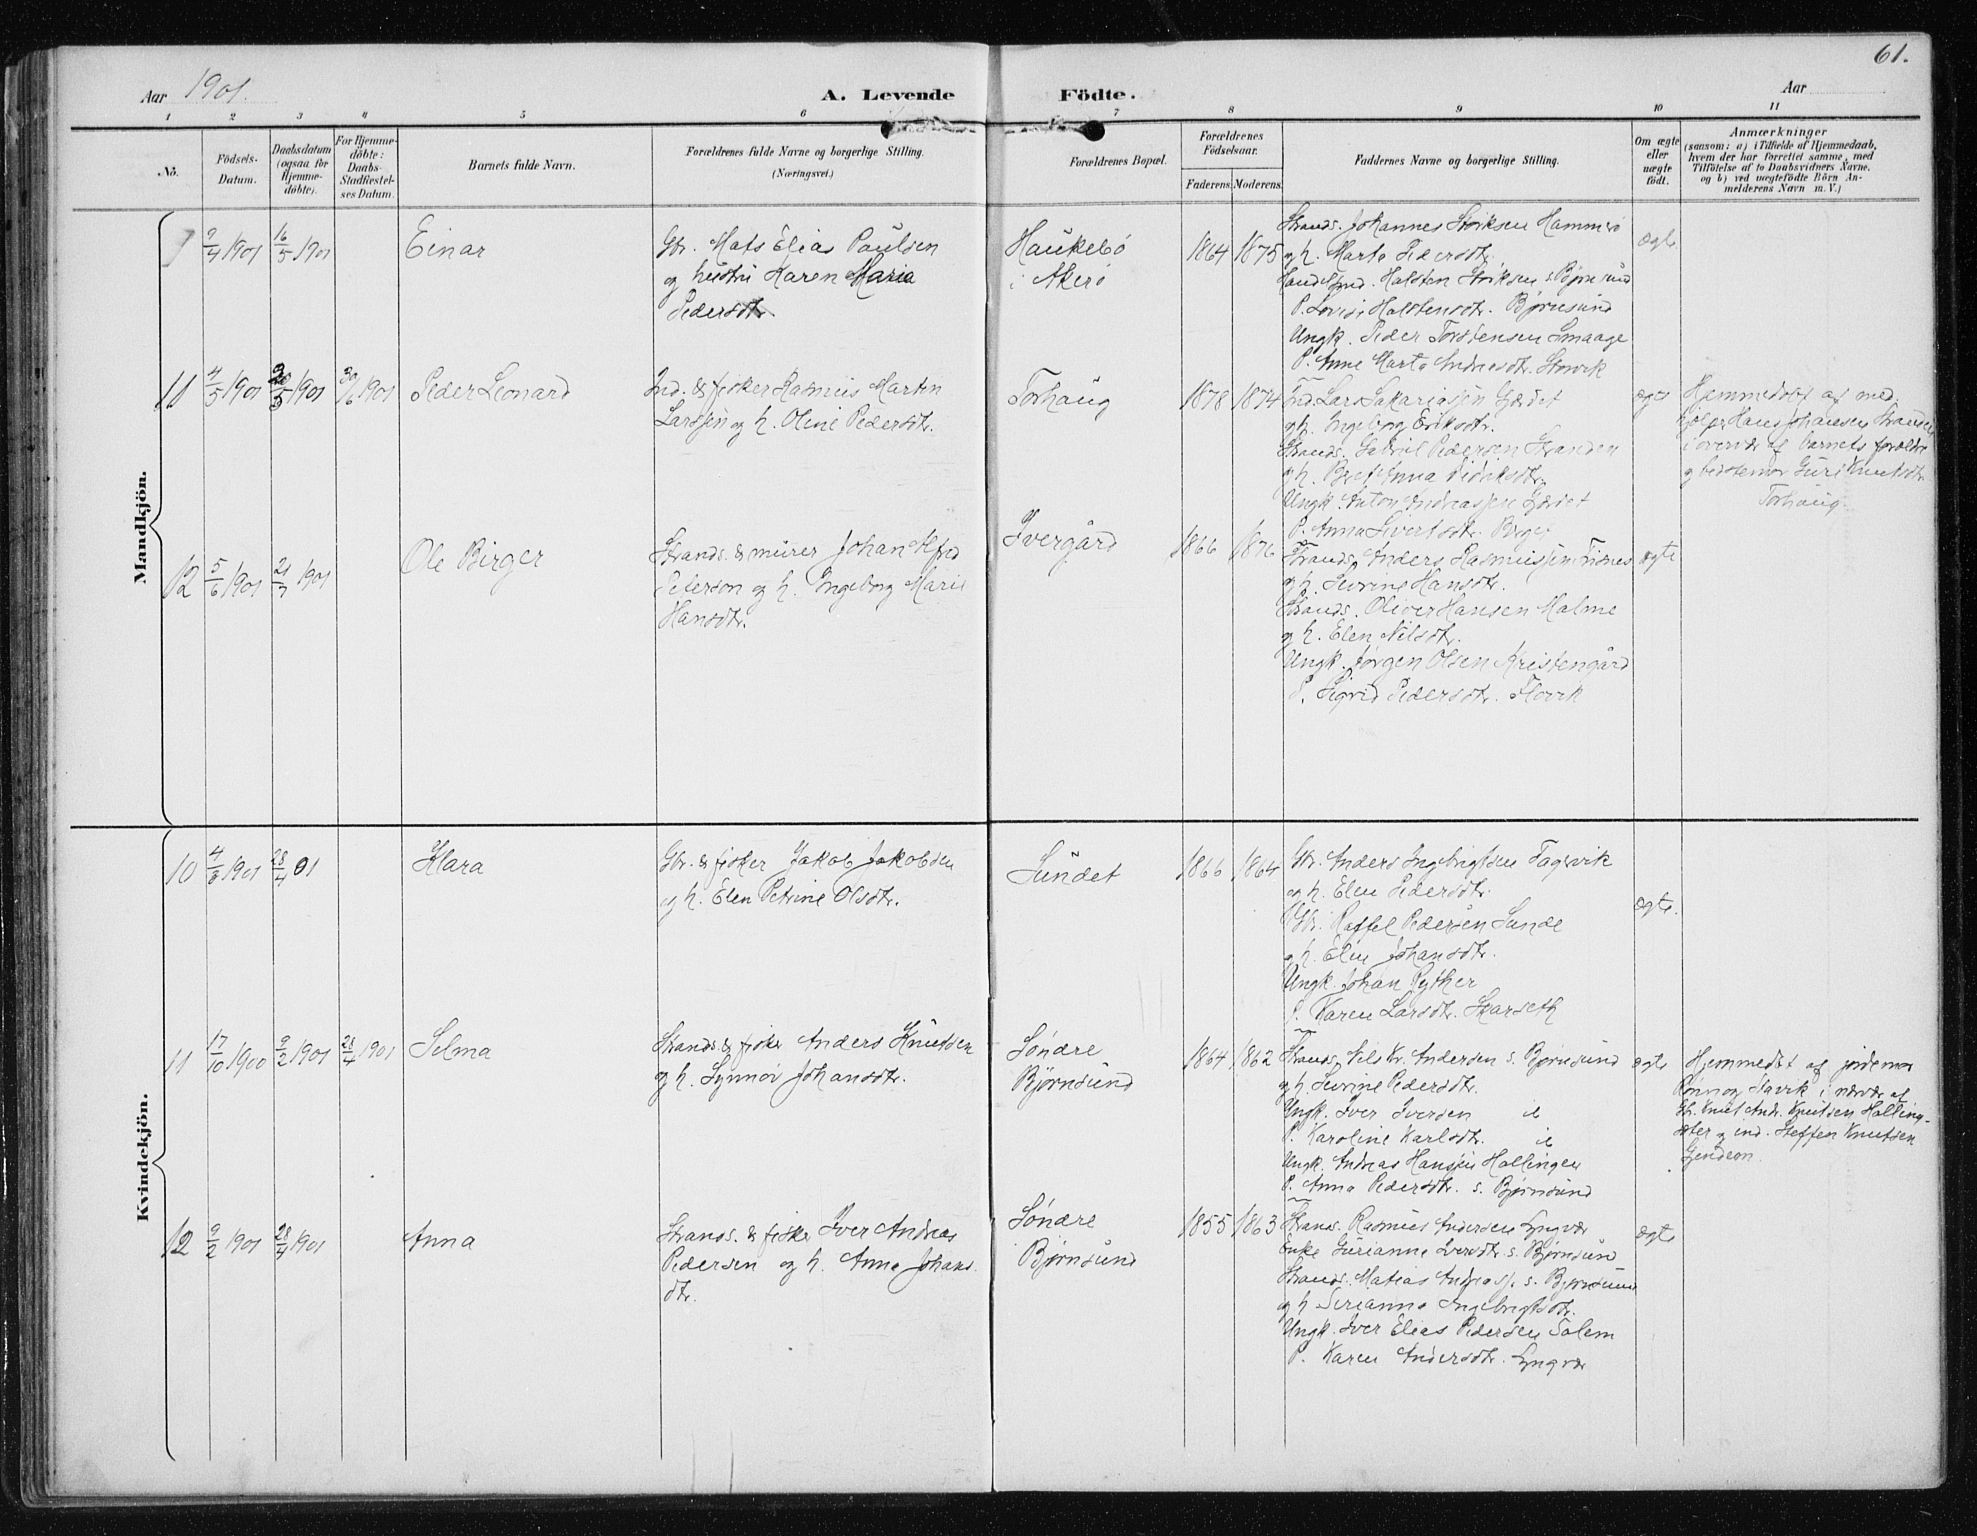 61.
Aar 1901.
A. Levende Födte.
Aar
1 2 3 4 5 6 7 8 9 10 11
No.
Födsels-Datum.
Daabsdatum (ogsaa for Hjemme-döbte).
For Hjemme-döbte: Daabs-Stadfæstel-ses Datum.
Barnets fulde Navn.
Forældrenes fulde Navne og borgerlige Stilling.
(Næringsvei.)
Forældrenes Bopæl.
Forældrenes Födselsaar.
Faderens. Moderens.
Faddernes Navne og borgerlige Stilling.
Om ægte eller uægte födt.
Anmærkninger
(saasom: a) i Tilfælde af Hjemmedaab,
hvem der har forrettet samme, med
Tilföielse af to Daabsvidners Navne.
og b) ved uægtefödte Börn An-
melderens Navn m. V.)
Mandkjön.
9/4 1901 16/5 1901 Einar
Gbr. Mats Elias Paulsen
og hustru Karen Maria
Pedersdtr.
Haukebö
i Akerö
1864 1875
Strands. Johannes Hammerö
og h. Marta Pedersdtr.
Halsten s. Bjørnsund
P. Lovise Halstensdtr. Bjørnsund
Ungk. Peder Torstensen Smaage
P. Anne Marta Andreasdtr. Storvik
ægte.
11 4/5 1901 1901 30/6 1901 Peder Leonard
Ind. & fisker Rasmus Martin
Larssen og h. Oline Pedersdtr.
Torhaug
1878 1874
Ind. Lars Sakariassen Gjerdet
og h. Ingeborg Eriksdtr.
Strands. Gabriel Pedersen Stranden
og h. Anna Didriksdtr.
Ungk. Anton Andreassen Gjerdet
P. Anna Sivertsdtr. Berget
ægte
Hjemmedøbt af med-
hjælper Hans Johansen Stranden
i overvær af barnets forældre
og bedstemor Guri Knutsdtr.
Torhaug.
12 5/6 1901 21/7 1901 Ole Birger
Strands. & murer Johan Alfred
Peterson og h. Ingeborg Marie
Hansdtr.
Ivergård
1866 1876
Strands. Anders Rasmussen
og h. Severine Hansdtr.
Strands. Oliver Hansen Malme
og h. Elen Nilsdtr.
Ungk. Jørgen Olsen Kristengård
P. Sigrid Pedersdtr. Flovik
ægte
Kvindekjön.
10 4/3 1901 28/4 01 Klara
Gbr. & fisker Jakob Jakobsen
og h. Elen Petrine Olsdtr.
Sundet
1866 1864
Gbr. Anders Ingebrigtsen Tagsvik
og h. Elen Pedersdtr.
Gbr. Raffel Pedersen Sunde
og h. Elen Johansdtr.
Ungk. Johan Rytker
P. Karen Larsdtr. Skarseth
ægte.
11 17/10 1900 9/2 1901 28/4 1901 Selma
Strands. & fisker Anders Knutsen
og h. Synnøv Johansdtr.
Søndre
Bjørnsund
1864 1862
Strands. Nils Kr. Andersen s. Bjørnsund
og h. Severine Pedersdtr.
Ungk. Iver Iversen
P. Karoline Karlsdtr.
Ungk. Andreas Hansen Hollingen
P. Anna Pedersdtr. s. Bjørnsund
ægte
Hjemmedøbt af jordemor
Rønnog Havik i nærvær af
Gbr. Knut Andr. Knutsen Holling-
sæter og ind. Steffen Knutsen
Gjendem.
12 9/2 1901 28/4 1901 Anna
Strands. & fisker Iver Andreas
Pedersen og h. Anne Johans-
dtr.
Søndre
Bjørnsund
1855 1863
Strands. Rasmus Andersen Lyngvær
Enke Gurianne Iversdtr. s. Bjørnsund
Strands. Matias Andreass. s. Bjørnsund
og h. Serianna Ingebrigtsdtr.
Ungk. Iver Elias Pedersen Solem
P. Karen Andersdtr. Lyngvær
ægte